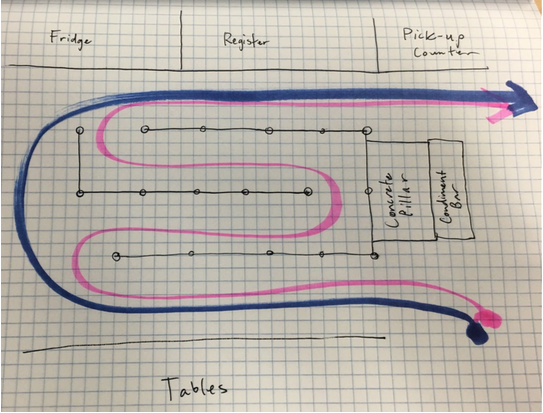 Fridge
Register
Pick-up
Counter
Concrete
Pillar
Condiment
Bar
Tables